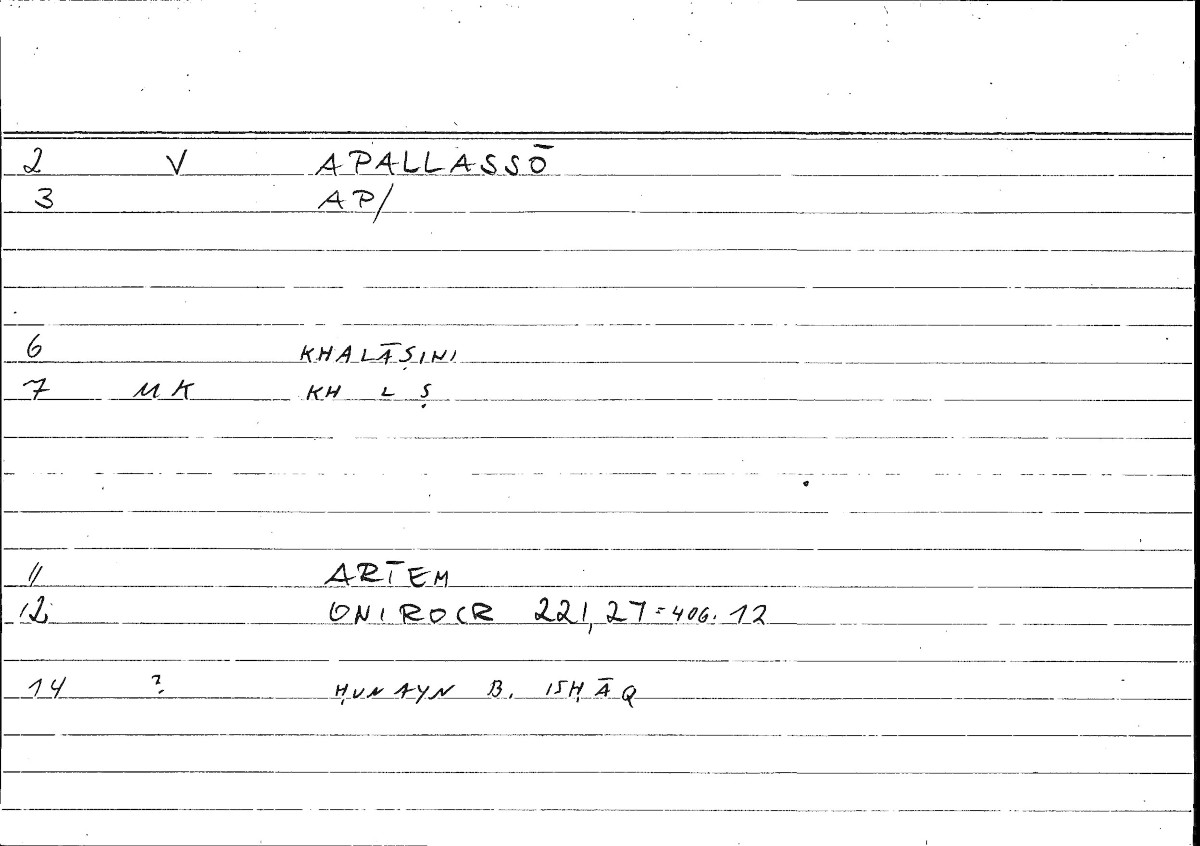 2 V APALLASSŌ
3 AP/
6 KHALĀṢINI
7 MK KH L Ṣ
11 ARTEM
12 ONIROCR 221,27=406.12
14 ? ḤUNAYN B. ISḤĀQ